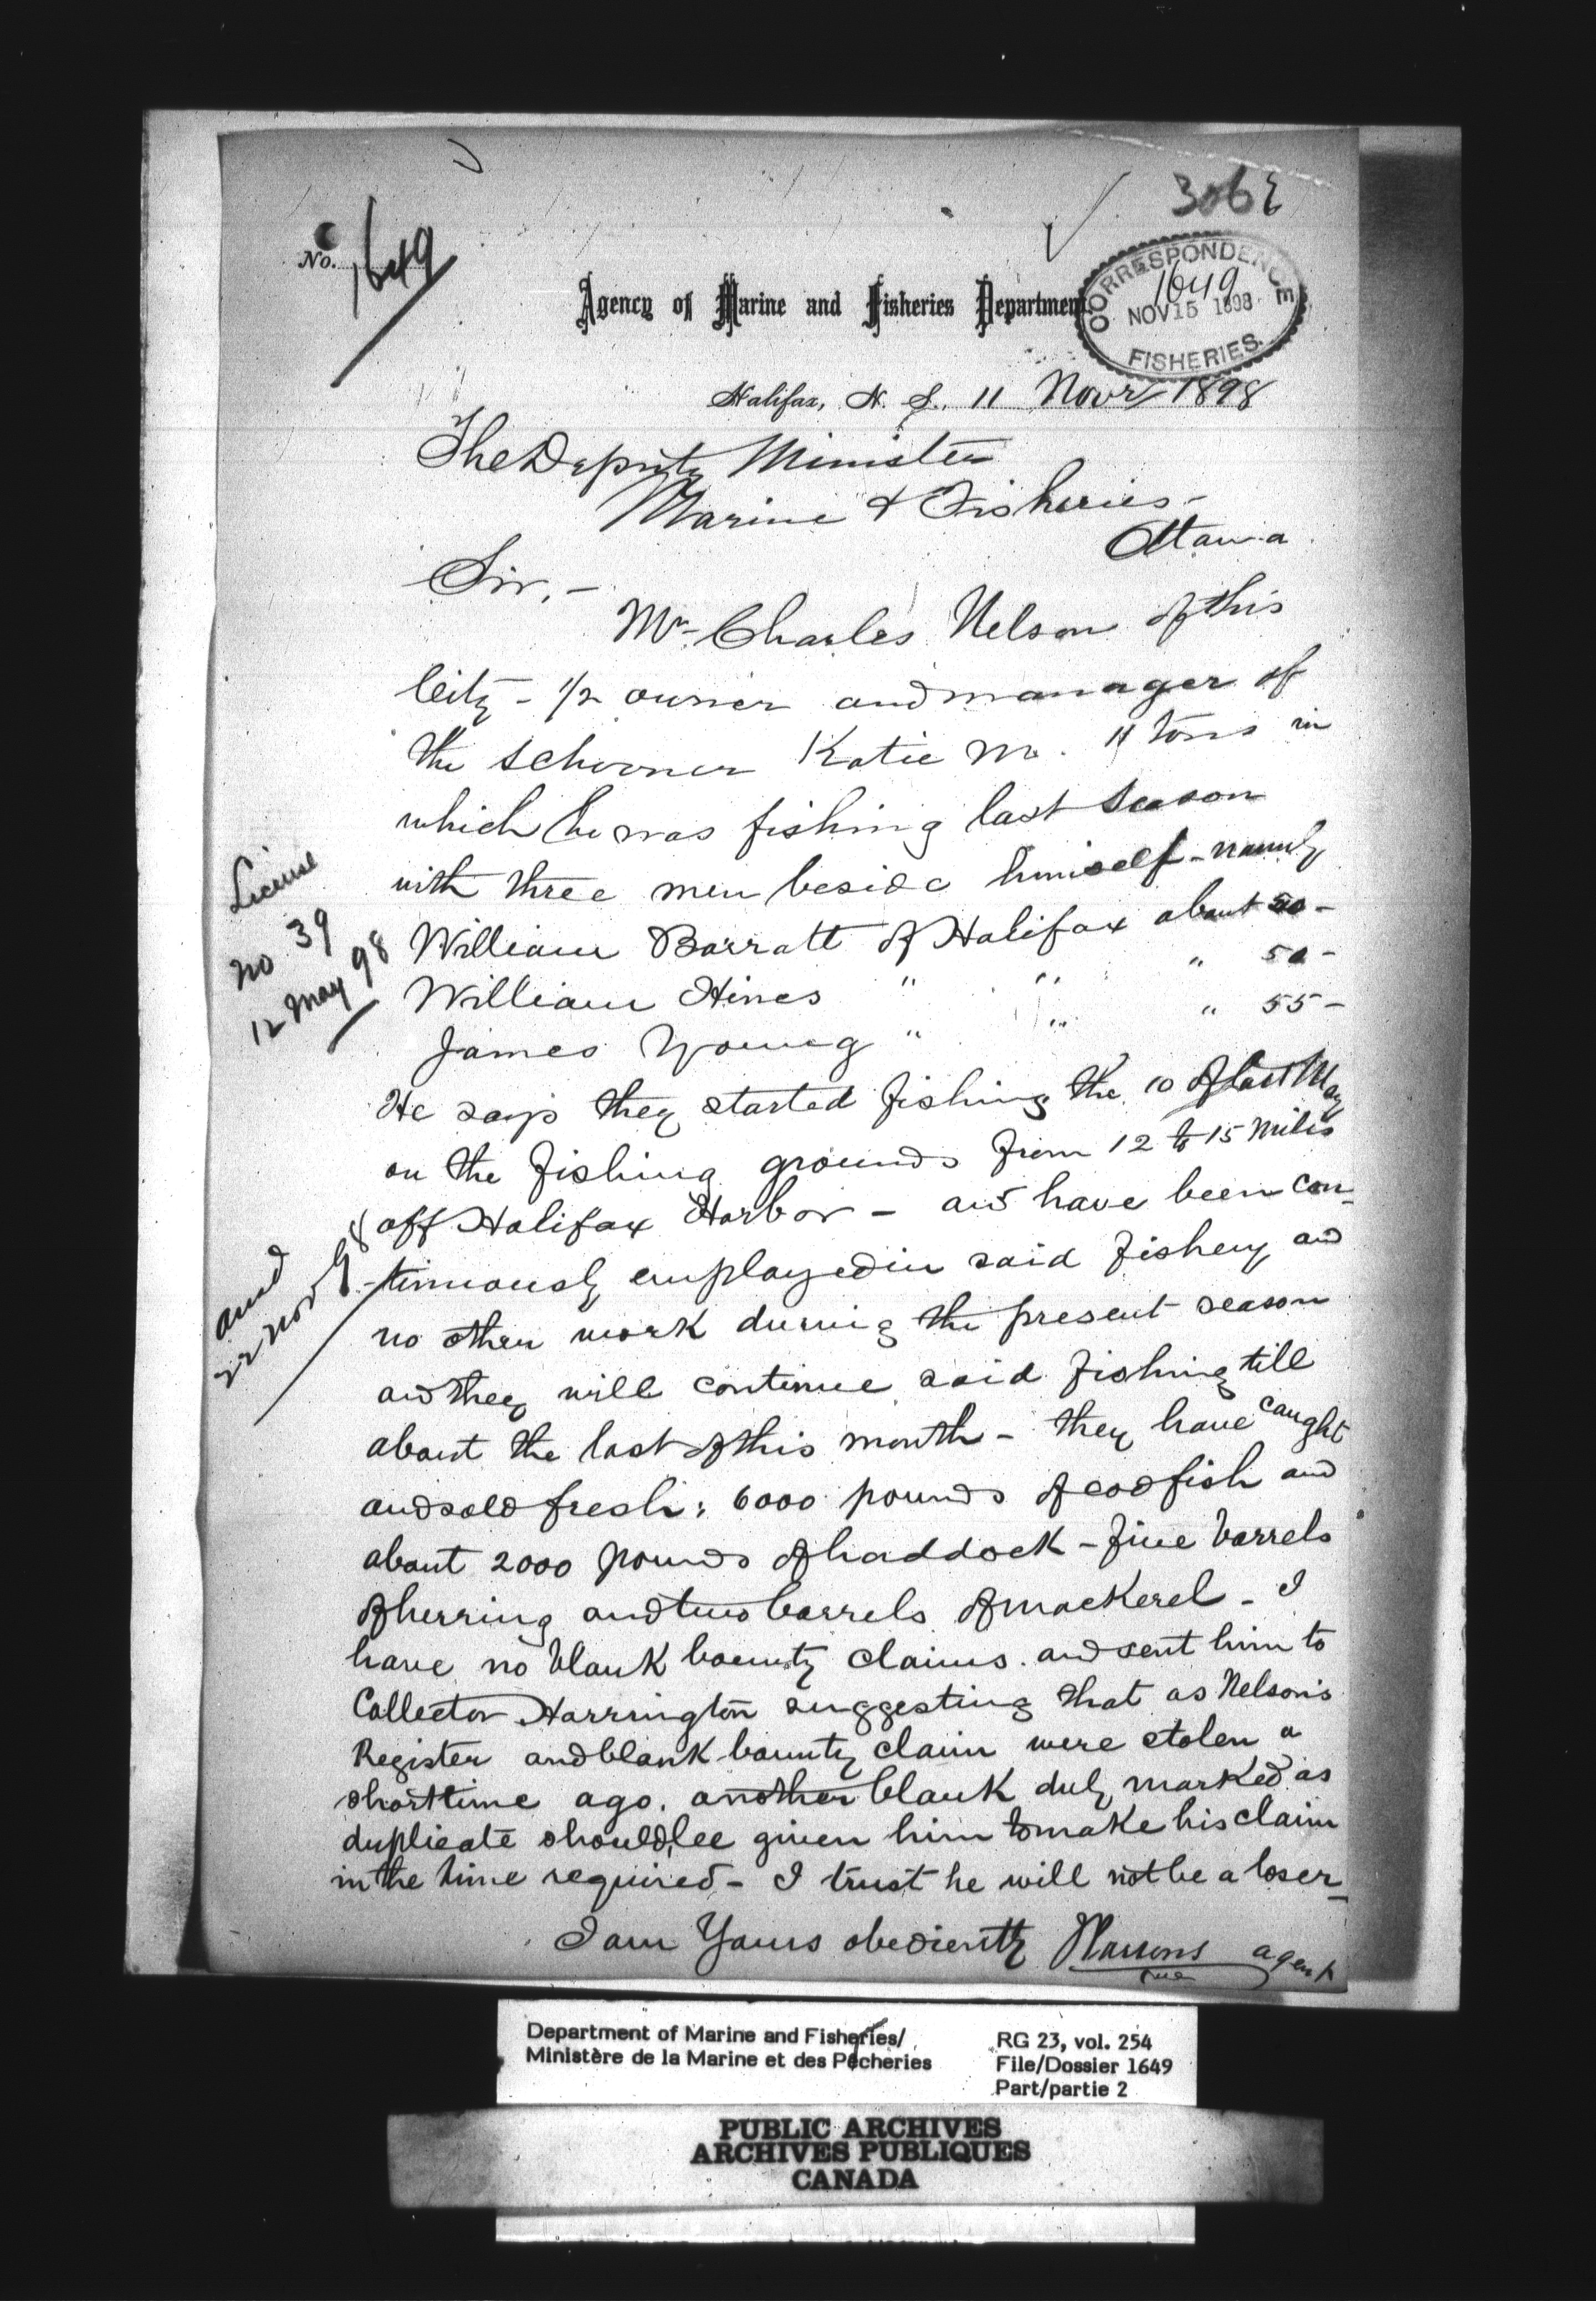 3068
No. 1649
CORRESPONDENCE
1649
NOV 15 1898
FISHERIES.
Agency of Marine and Fisheries Department
Halifax, N. S., 11 Novr 1898
The Deputy Minister
Marine & Fisheries -
Ottawa
Sir, -
Mr Charles Nelson of this
City - 1/2 owner and manager of
the schooner Katie M. 11 tons in
which he was fishing last season
with three men beside himself - namely
William Barratt of Halifax about 50 -
William Hines " " " 50 -
James Young " " " 55 -
License
no 39
12 May 98
He says they started fishing the 10 of last May
on the fishing grounds from 12 to 15 miles
off Halifax Harbor - and have been con-
-tinuously employed in said fishery and
no other work during the present season
and they will continue said fishing till
about the last of this month - they have caught
and sold fresh: 6000 pounds of codfish and
about 2000 pounds of haddock - five barrels
of herring and two barrels of mackerel - I
have no blank bounty claims. and sent him to
Collector Harrington suggesting that as Nelson's
Register and blank bounty claim were stolen a
short time ago. another blank duly marked as
duplicate should be given him to make his claim
in the time required - I trust he will not be a loser -
I am Yours obediently
agent
22 Nov 98
Department of Marine and Fisheries/
Ministère de la Marine et des Pêcheries
RG 23, vol. 254
File/Dossier 1649
Part/partie 2
PUBLIC ARCHIVES
ARCHIVES PUBLIQUES
CANADA